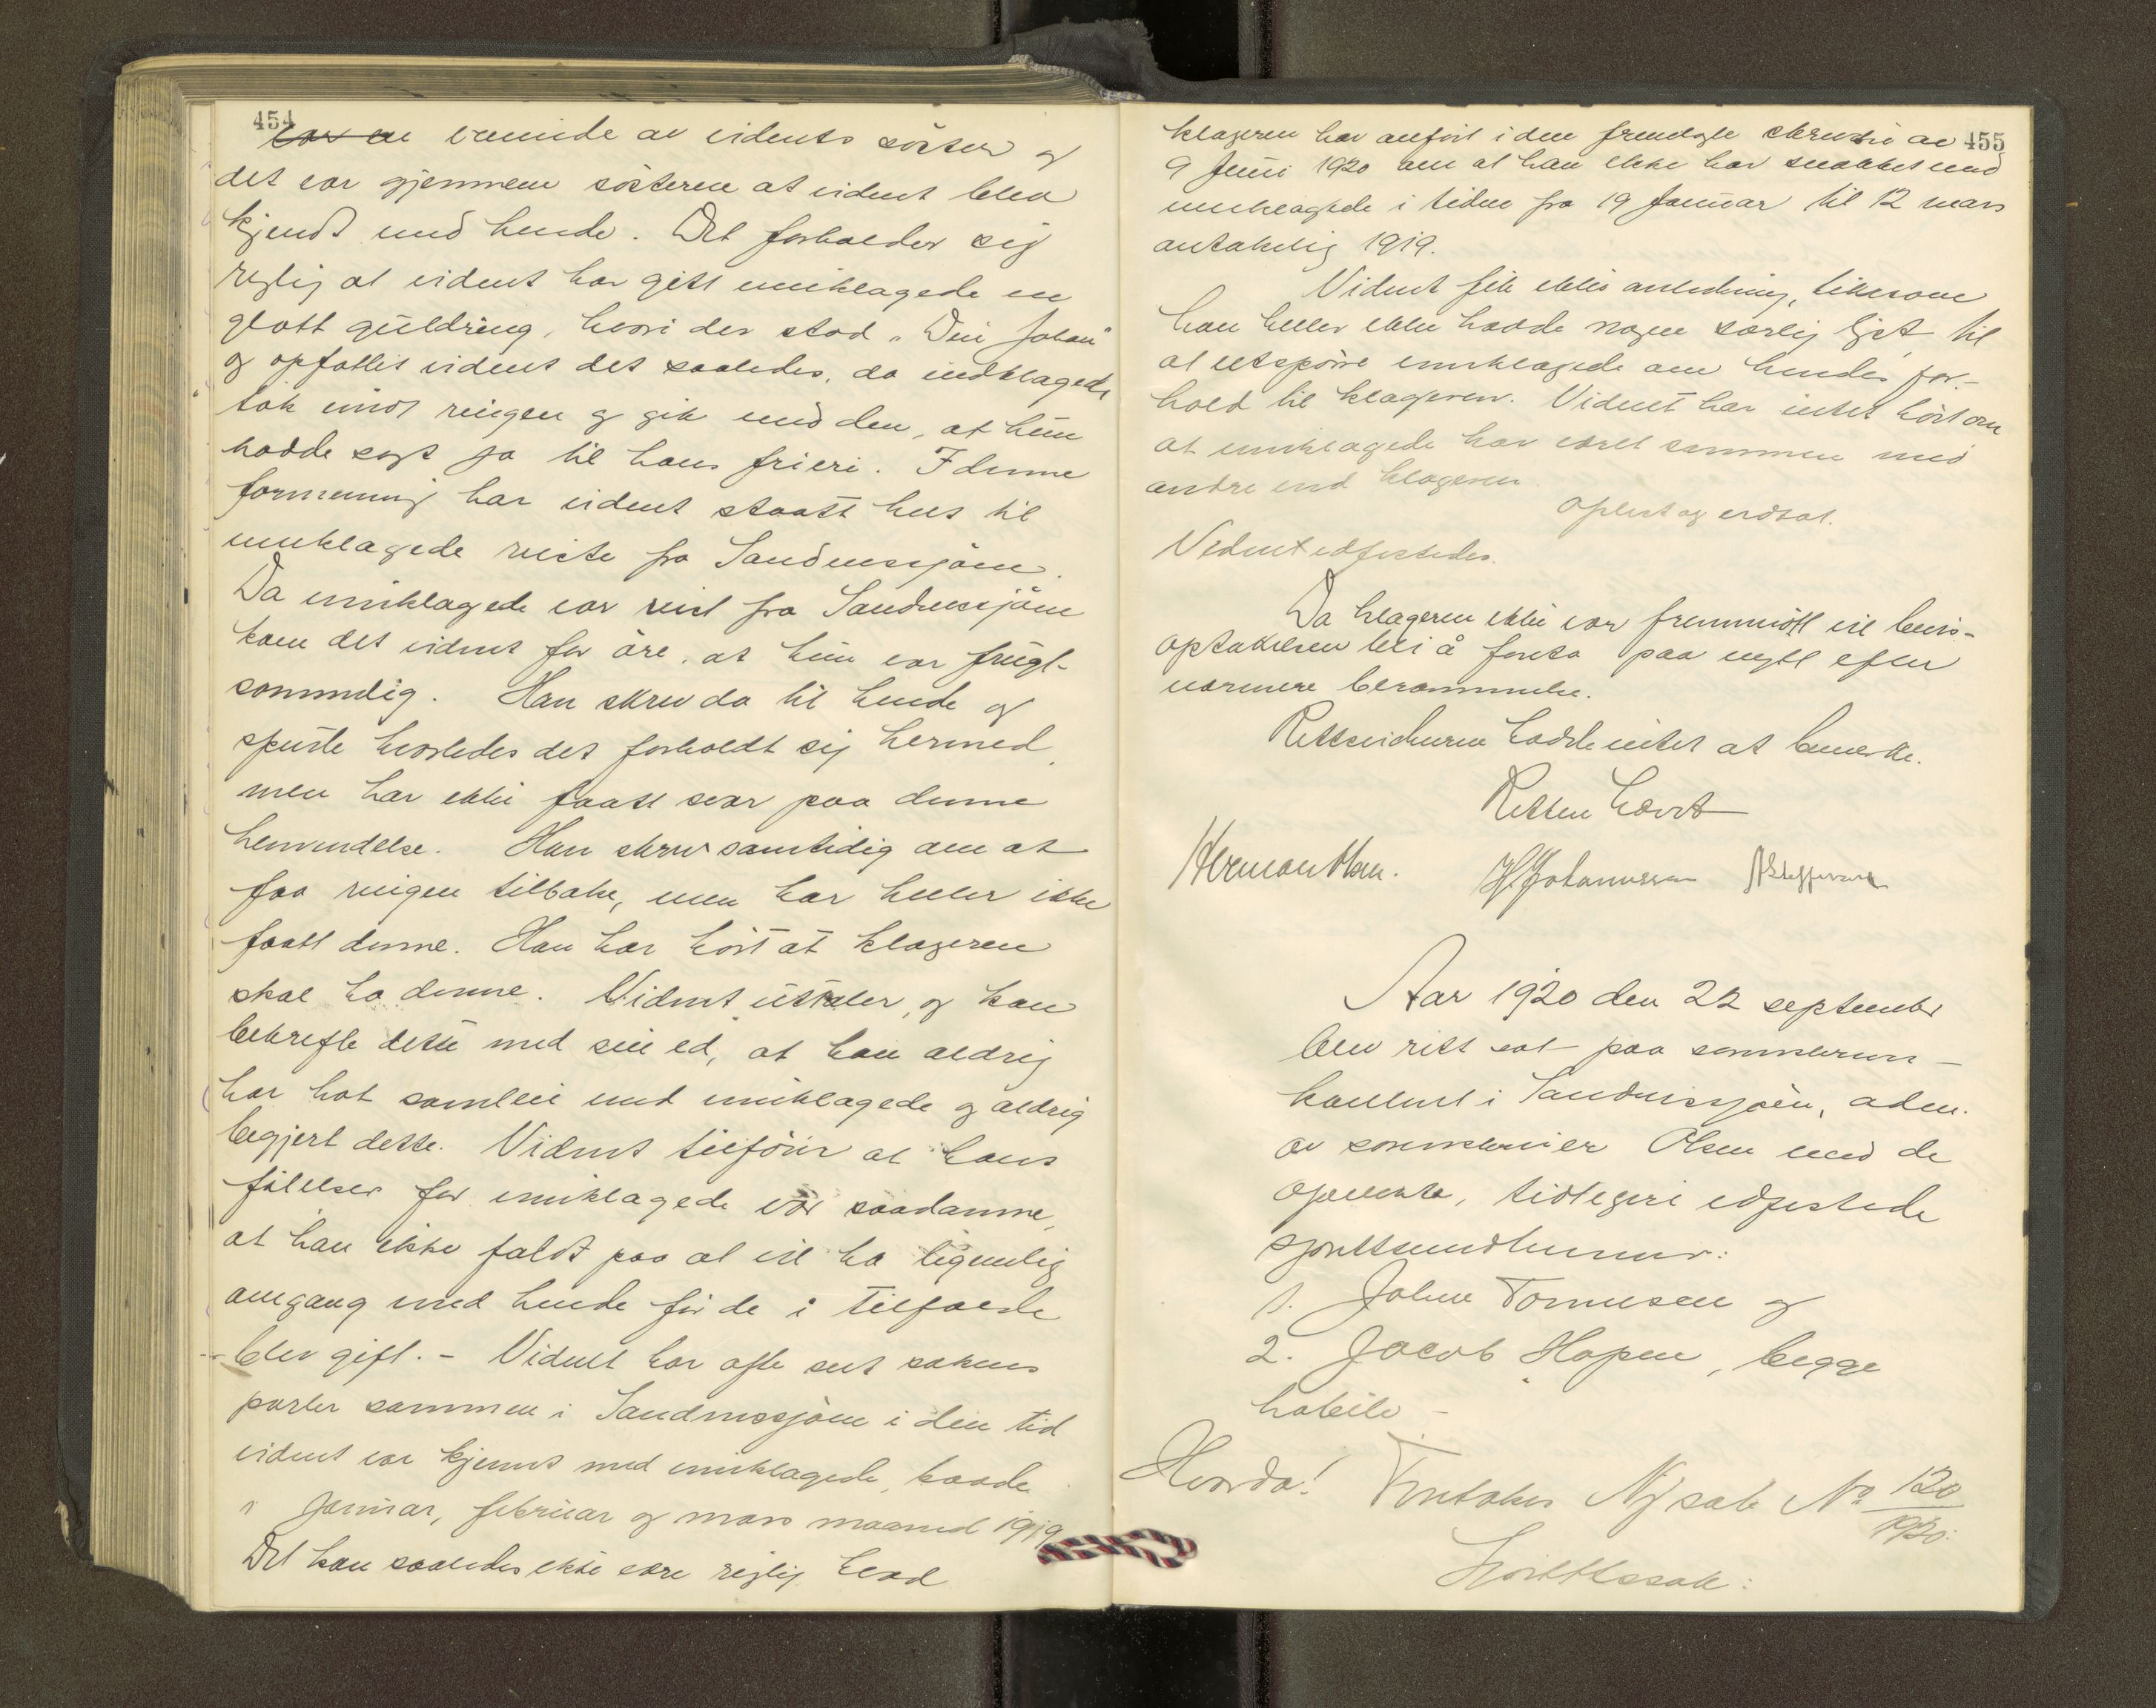 454
var en veninde av vidents söster og
det var gjennem sösteren at vident blev
kjendt med hende. Det forholder sig
rigtig at vident har gitt innklagede en
glatt guldring, hvori der stod "Din Johan"
og opfattet vident det saaledes, da indklagede
tok imot ringen og gik med den, at hun
hadde sagt ja til hans frieri. I denne
formening har vident staatt helt til
innklagede reiste fra Sandnessjöen.
Da innklagede var reist fra Sandnessjöen
kom det vident for öre, at hun var frugt-
sommelig. Han skrev da til hende og
spurte hvorledes det forholdt sig hermed,
men har ikke faatt svar paa denne
henvendelse. Han skrev samtidig om at
faa ringen tilbake, men har heller ikke
faatt denne. Han har hört at klageren
skal ha denne. Vidnet uttaler, og kan
bekrefte dette med sin ed, at han aldrig
har hat samleie med innklagede og aldrig
begjert dette. Vidnet tilföier at hans
fölelser for innklagede var saadanne,
at han ikke faldt paa at vil ha legemlig
omgang med hende för de i tilfælde
blev gift. - Vidnet har ofte set sakens
parter sammen i Sandnessjöen i den tid
vidnet var kjennt med innklagede, baade
i januar, februar og mars maaned 1919
Det kan saaledes ikke være rigtig hvad
455
klageren har anfört i den fremlagte skrivelse av
9 juni 1920 om at han ikke har snakket med
innklagede i tiden fra 19 januar til 12 mars
antakelig 1919.
Vidnet fik ikke anledning, likesom
han heller ikke hadde nogen særlig lyst til
at utspörre innklagede om hendes for-
hold til klageren. Vidnet har intet hört om
at innklagede har været sammen med
andre end klageren.
Oplest og vedtat.
Vidnet edfestedes.
Da klageren ikke var fremmött vil bevis-
optakelsen bli å foreta paa nytt efter
nærmere berammelse.
Rettsvidnerne hadde intet at bemerke.
Retten hævet
Herman Olsen. H Johannessen
Aar 1920 den 22 september
blev rett sat paa sorenskriver-
kontoret i Sandnessjöen, adm.
av sorenskriver Olsen med de
opnevnte, tidligere edfestede
sjörettsmedlemmer:
1. Johan Tonnesen og
2. Jacob Hopen, begge
habile -
Hvorda! Foretokes Ny sak No 120/1920:
Sjörettssak: